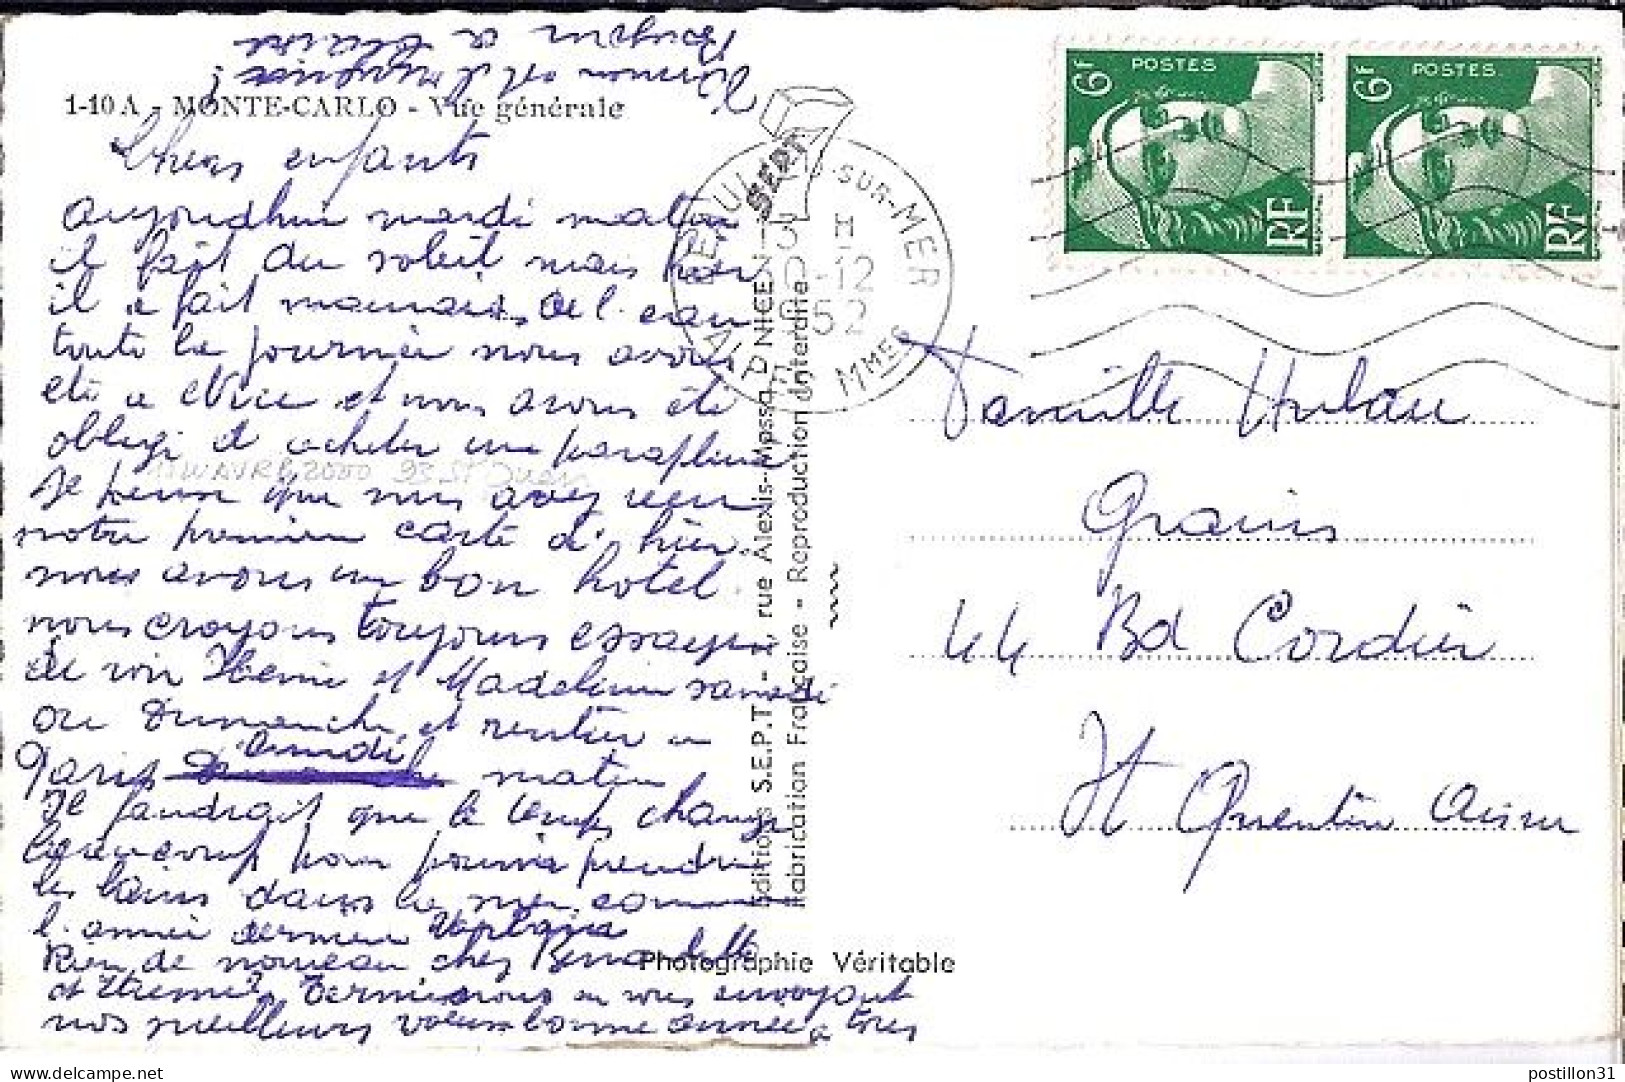 1-10 A - MONTE-CARLO - Vue générale
Chers enfants
aujourdhui mardi matin
il fait du soleil mais hier
il a fait mauvais, de l'eau
toute la journée nous avons
été a Nice et nous avons été
obligé d acheter une parapluie
Je pense que vous avez reçu
notre premiere carte d'hier.
nous avons un bon hotel.
nous croyons toujours essayer
de voir et Madeleine samedi
ou Dimanche et rentrer a
Paris lundi matin
Il faudrait que le temps change
beaucoup pour pouvoir prendre
les bains dans la mer comme
l'année derniere
Rien de nouveau chez Bernadette
et Etienne, Terminons en vous envoyant
nos meilleurs voeux bonne année a tous
Editions S.E.P.T. - rue Alexis-Mossa, NICE
Fabrication Française - Reproduction Interdite
Photographie Véritable
BEAULIEU-SUR-MER
ALPES MMES
52
SEPT
6F POSTES RF
6F POSTES RF
Famille Hulau
Grains
44 Bd Cordier
St Quentin Aisne
postillon31